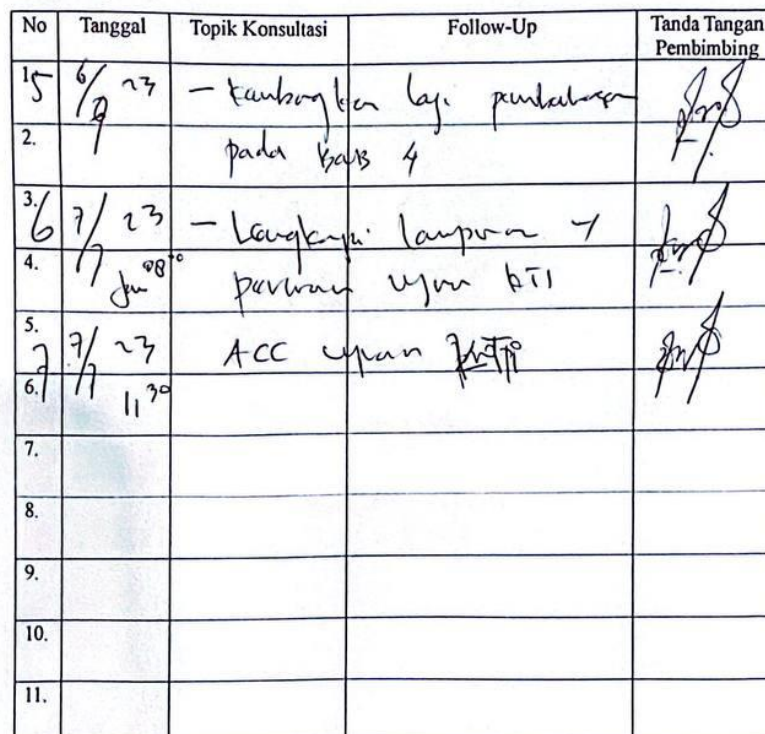 No Tanggal Topik Konsultasi Follow-Up Tanda Tangan Pembimbing
1. 5 6/ 23 - kembangkan lagi pembahasan
2. pada BAB 4
3. 6 7/7 23 - Lengkapi lampiran
4. Jam 08 ujian KTI
5. 7 7/7 23 ACC ujian KTI
6. 11 30
7.
8.
9.
10.
11.